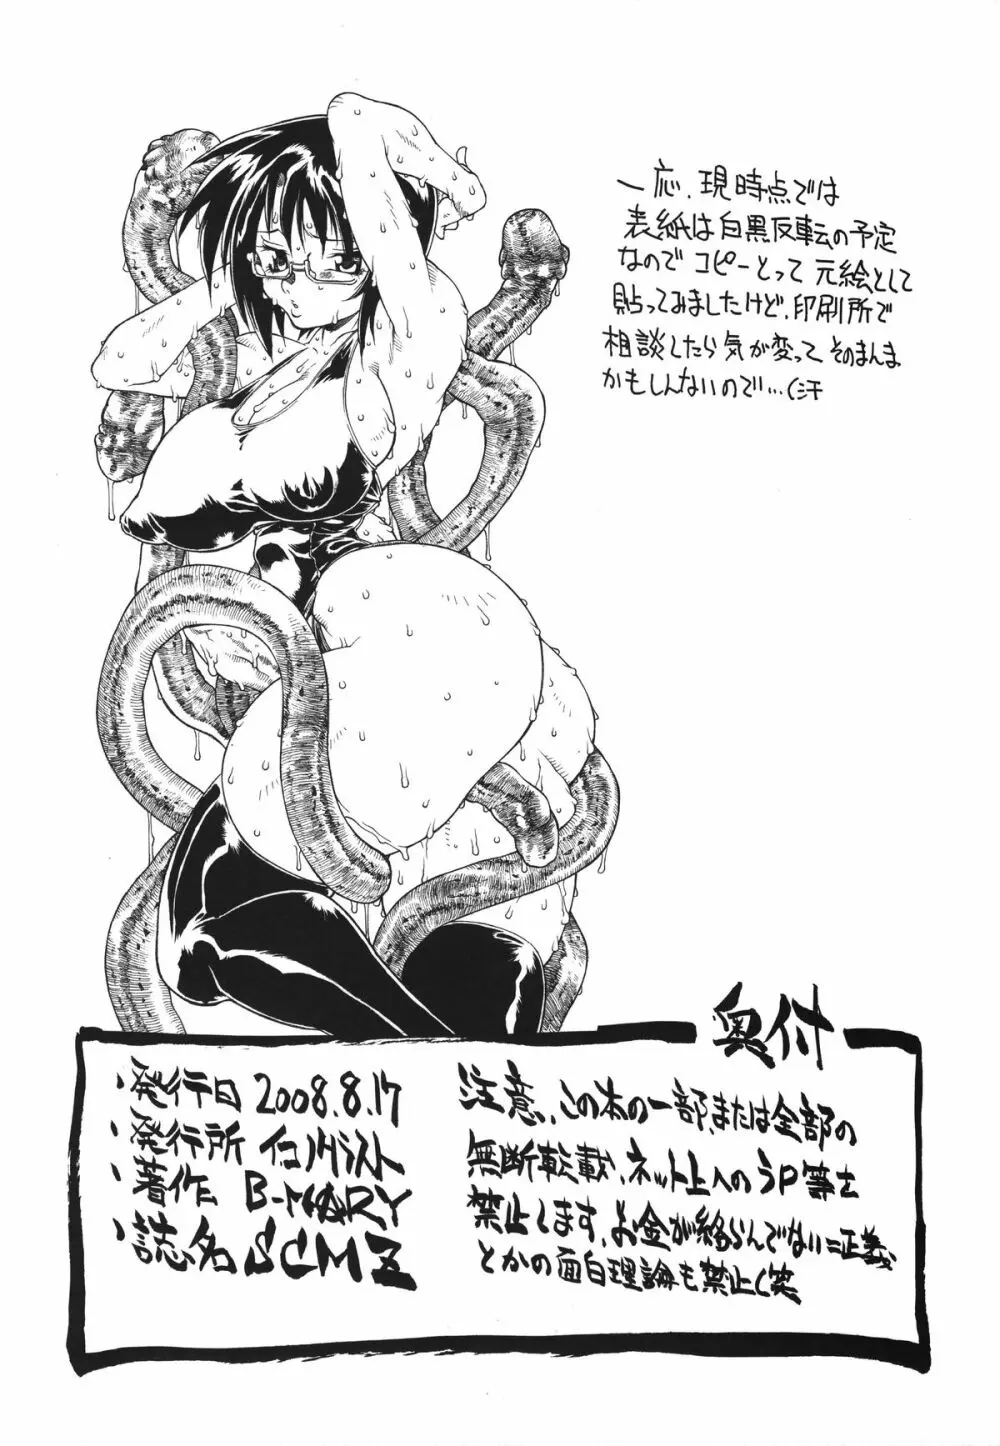 一応、現時点では
表紙は白黒反転の予定
なので コピーとって 元絵として
貼ってみましたけど、印刷所で
相談したら気が変って そのまんま
かもしんないので…(汗
奥付
・発行日 2008.8.17
・発行所
・著作 B-MARY
・誌名 SCMZ
注意、この本の一部、または全部の
無断転載、ネット上へのうP等を
禁止します。お金が絡らんでない=正義
とかの面白理論も禁止(笑